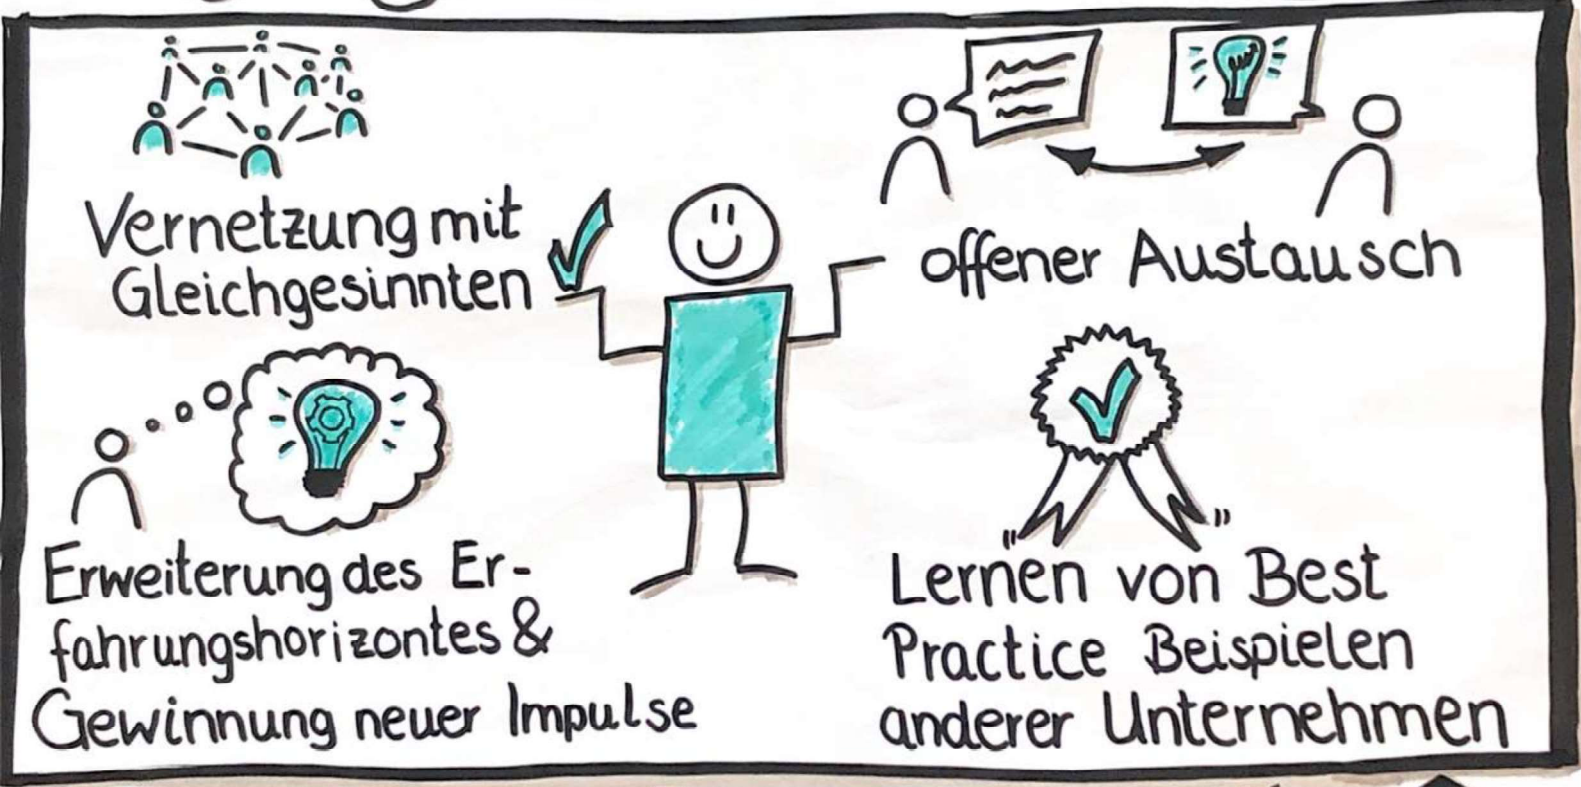 Vernetzung mit
Gleichgesinnten
offener Austausch
Erweiterung des Er-
fahrungshorizontes &
Gewinnung neuer Impulse
Lernen von Best
Practice Beispielen
anderer Unternehmen